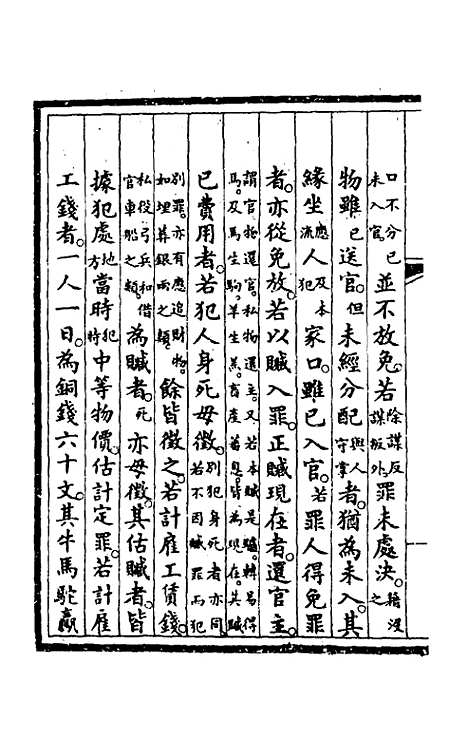 口不分已未入官並不放免。若除謀反謀叛外罪未處決。籍沒之
物雖已送官。但未經分配與人守掌者。猶為未入。其
緣坐應流人及本犯家口。雖已入官。若罪人得免罪
者。亦從免放。若以贓入罪。正贓現在者。還官主。
謂官物還官。私物還主。又若本贓是驢。轉易得
馬。及馬生駒。羊生羔。畜產蕃息。皆為現在。其贓
已費用者。若犯人身死毋徵。別犯身死者亦同。若不因贓罪而犯
別罪。亦有應追財物。如埋葬銀兩之類。餘皆徵之。若計雇工賃錢。
私役弓兵和借官車船之類。為贓者。死亦毋徵。其估贓者。皆
據犯處地方當時犯時中等物價。估計定罪。若計雇
工錢者。一人一日。為銅錢六十文。其牛馬駝驘